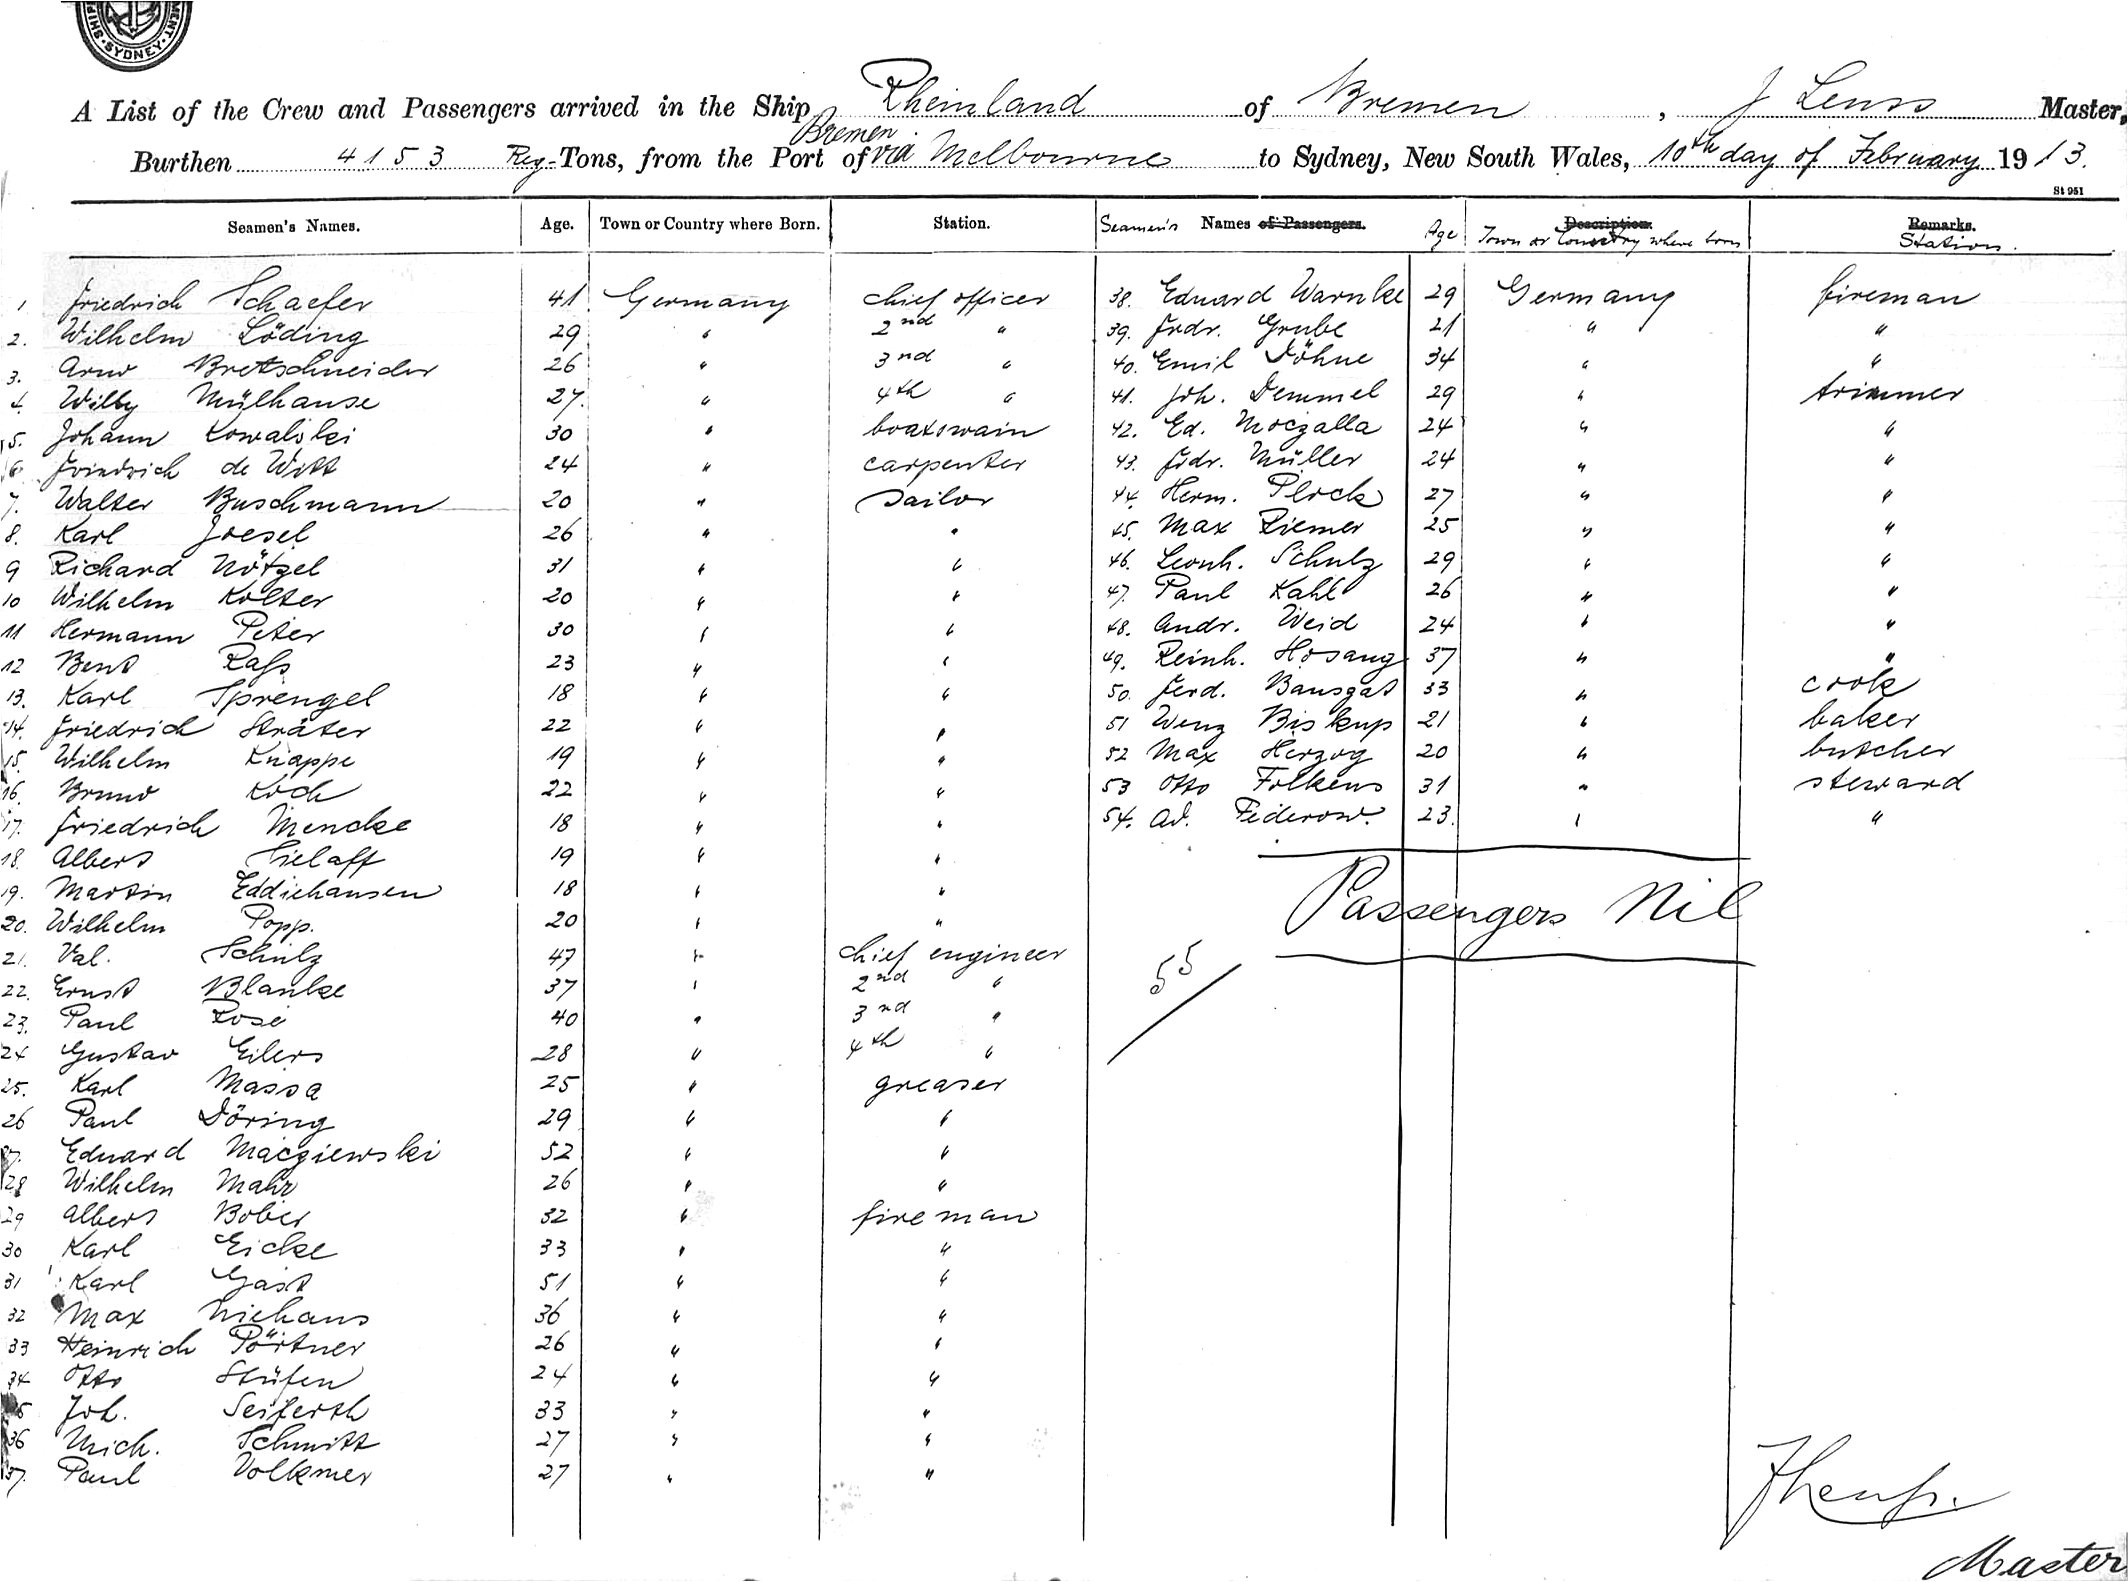 SHIP MENT.
SYDNEY
A List of the Crew and Passengers arrived in the Ship Rheinland of Bremen, J Leuss Master,
Bremen
Burthen 4153 Reg. Tons, from the Port of via Melbourne to Sydney, New South Wales, 10th day of February 1913.
St 951
Seamen's Names. Age. Town or Country where Born. Station. Seamen's Names of Passengers. Age Description. Town or Country where born Remarks. Station.
1 Friedrich Schaefer 41 Germany chief officer
2. Wilhelm Löding 29 " 2nd "
3. Arno Bretschneider 26 " 3rd "
4. Willy Mülhause 27. " 4th "
5. Johann Kowalski 30 " boatswain
6 Friedrich de Witt 24 " carpenter
7. Walter Buschmann 20 " sailor
8. Karl Joesel 26 " "
9 Richard Nötzel 31 " "
10 Wilhelm Kolter 20 " "
11 Hermann Peter 30 " "
12 Bent Rass 23 " "
13. Karl Sprengel 18 " "
14. Friedrich Sträter 22 " "
15. Wilhelm Knappe 19 " "
16. Bruno Koch 22 " "
17. Friedrich Mencke 18 " "
18. Albert Sielaff 19 " "
19. Martin Eddiehausen 18 " "
20. Wilhelm Popp. 20 " "
21. Val. Schulz 47 " chief engineer
22. Ernst Blanke 37 " 2nd "
23. Paul Rose 40 " 3rd "
24 Gustav Eilers 28 " 4th "
25. Karl Massa 25 " greaser
26 Paul Döring 29 " "
27. Eduard Macziewski 52 " "
28 Wilhelm Mahr 26 " "
29 Albert Bober 32 " fireman
30 Karl Eicke 33 " "
31 Karl Gast 51 " "
32 Max Niehaus 36 " "
33 Heinrich Pörtner 26 " "
34 Otto Stüfen 24 " "
35 Joh. Seiferth 33 " "
36 Mich. Schmitt 27 " "
37. Paul Volkmer 27 " "
38. Eduard Warnke 29 Germany fireman
39. Frdr. Grube 21 " "
40. Emil Döhne 34 " "
41. Joh. Demmel 29 " trimmer
42. Ed. Moczalla 24 " "
43. Frdr. Müller 24 " "
44. Herm. Plock 27 " "
45. Max Riemer 25 " "
46. Leonh. Schulz 29 " "
47. Paul Kahl 26 " "
48. Andr. Weid 24 " "
49. Reinh. Hosang 37 " "
50. Ferd. Bausgat 33 " cook
51 Wenz Biskup 21 " baker
52 Max Herzog 20 " butcher
53 Otto Folkens 31 " steward
54. Ad. Federow. 23. " "
Passengers Nil
55
J Leuss.
Master